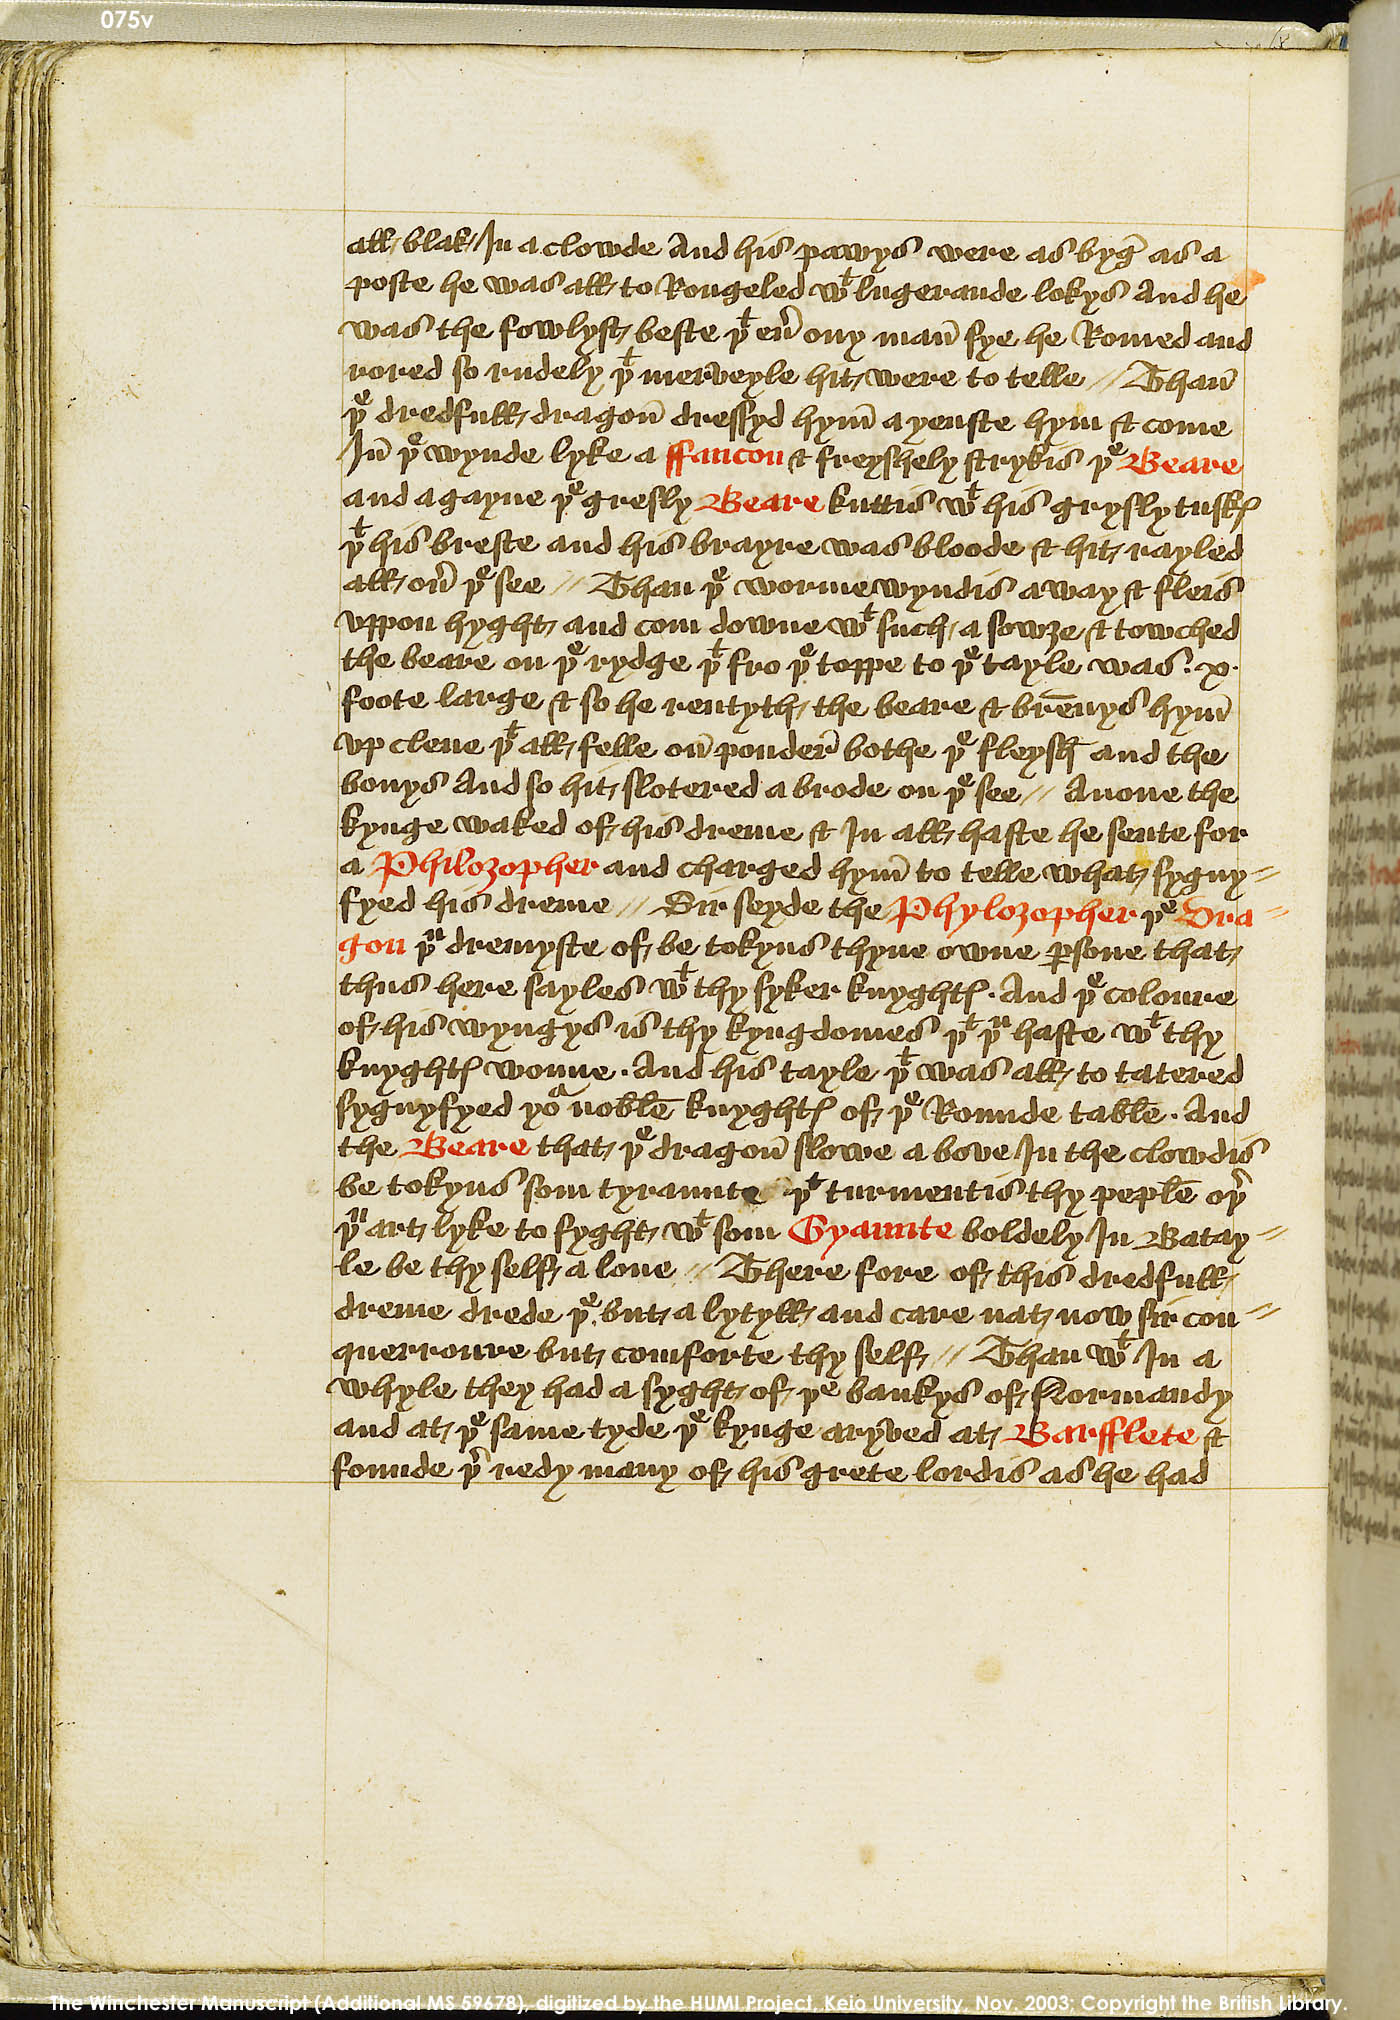 075v
all blak In a clowde And his pawys were as byg̃ as a
poste he was all to Rongeled wᵗ lugerande lokys And he
was the fowlyst beste þᵗ eũ ony mañ sye he Romed and
rored so rudely þᵗ merveyle hit were to telle // Thañ
þᵉ dredfull dragoñ dressyd hym̃ a yenste hym & come
Iñ þᵉ wynde lyke a ffaucon & freyshely strykis þᵉ Beare
and agayne þᵉ gresly Beare kuttis wᵗ his grysly tuskꝭ
þᵗ his breste and his brayre was bloode & hit rayled
all oũ þᵉ see // Than þᵉ worme wyndis away & fleis
vppon hyght and com downe wᵗ such a sowze & towched
the beare on þᵉ rydge þᵗ fro þᵉ toppe to þᵉ tayle was .x.
foote large & so he rentyth the beare & brẽnys hym̃
vp clene þᵗ all felle oñ ponder̃ bothe þᵉ fleysh̃ and the
bonys And so hit slotered a brode on þᵉ see // Anone the
kynge waked of his dreme & In all haste he sente for
a Philozopher and charged hym̃ to telle what sygny=
fyed his dreme // Sir seyde the Phylozopher þᵉ Dra=
gon þᵘ dremyste of be tokyns thyne owne ꝑsone that
thus here sayles wᵗ thy syker knyghtꝭ. And þᵉ coloure
of his wyngys is thy kyngdomes þᵗ þᵘ haste wᵗ thy
knyghtꝭ wonne. And his tayle þᵗ was all to tatered
sygnyfyed yoᵃ noblẽ knyghtꝭ of þᵉ Rounde tablẽ. And
the Beare that þᵉ dragoñ slowe a bove In the clowdis
be tokyns som tyraunte þᵗ turmentis thy peplẽ oþ̃
þᵘ art lyke to fyght wᵗ som Gyaunte boldely In Batay=
le be thy self a lone // There fore of this dredfull
dreme drede þᵉ but a lytyll and care nat now sir con=
querroure but comforte thy self // Than wᵗ In a
whyle they had a syght of þᵉ bankys of Normandy
and at þᵉ same tyde þᵉ kynge aryved at Barfflete &
founde þ̃ redy many of his grete lordis as he had
The Winchester Manuscript (Additional MS 59678), digitized by the HUMI Project, Keio University, Nov. 2003; Copyright the British Library.